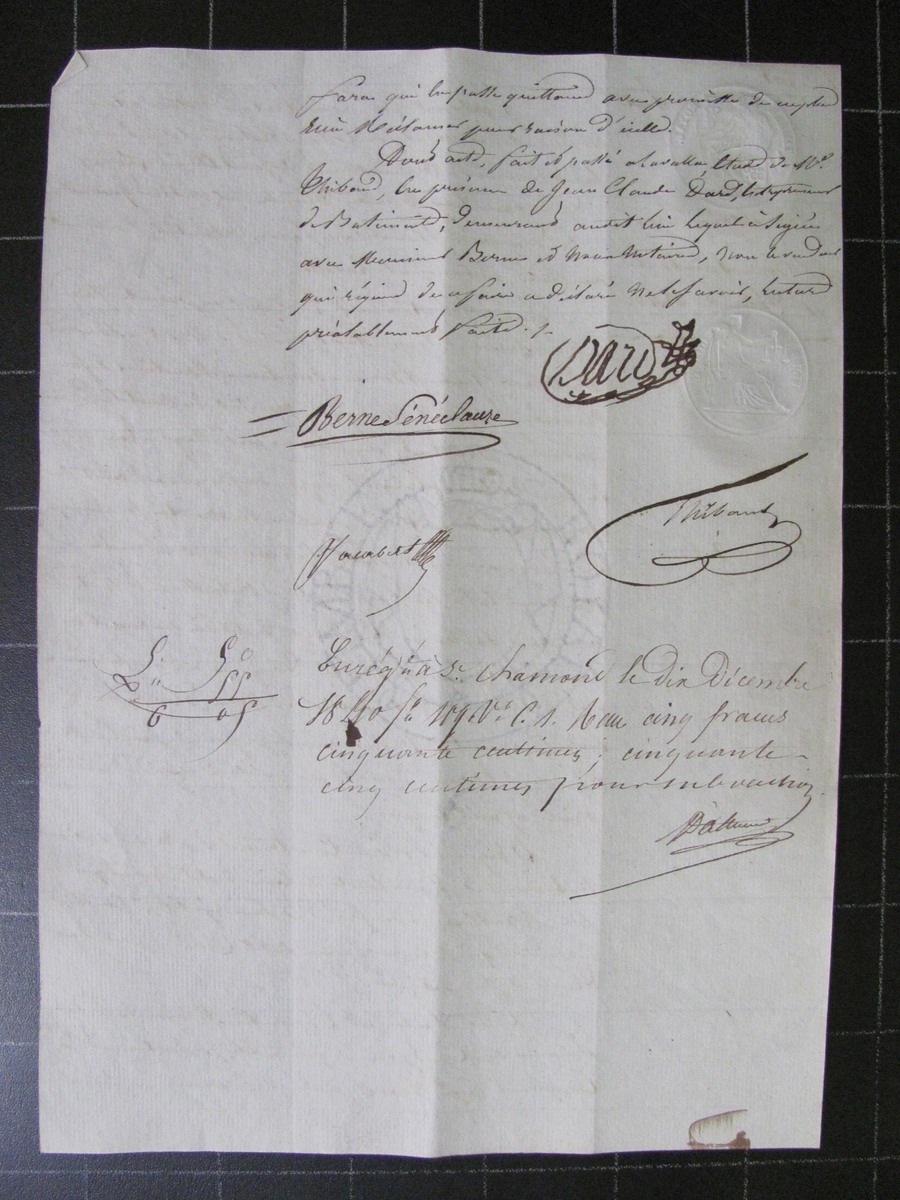 faron qui la passe quittance avec promesse de
rien réclamer pour raison d'icelle.
Dont acte, fait et passé a Lavalla Etude de Me.
Thibaud, En présence de Jean Claude Dard, Entrepreneur
de Batiments, demeurant audit lieu lequel à Signé
avec Monsieur Berne et Nous Notaires, non le vendeur
qui réquis de ce faire a déclaré Ne le Savoir, Lecture
préalablement faite ./.
Dard
Berne Sénéclauze
Thibaud
5 50
55
6 05
Enrégté à St. Chamond le dix Décembre
1840 fo 109 Vo C. 1. Reçu cinq francs
cinquante centimes; cinquante
cinq centimes pour subvention